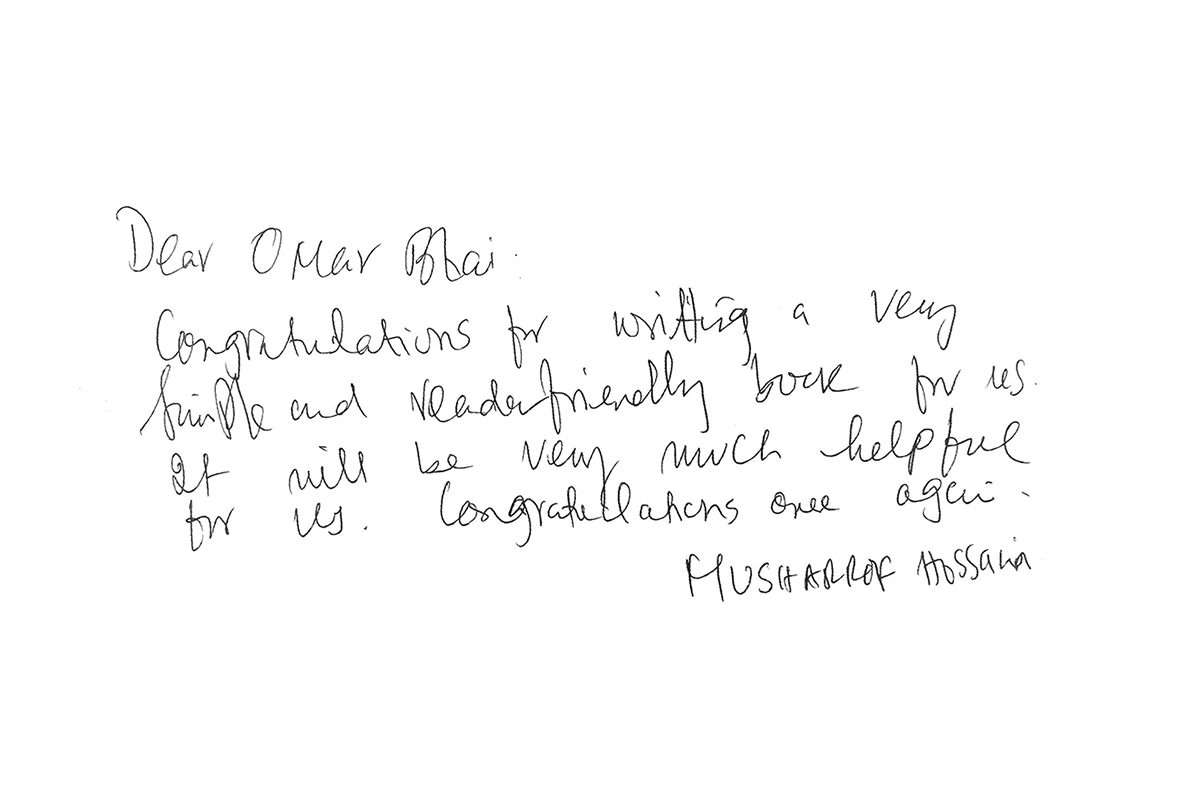 Dear Omar Bhai.
Congratulations for writting a very
simple and reader friendly book for us.
It will be very much helpful
for us. Congratulations once again.
MUSHARROF HOSSAIN